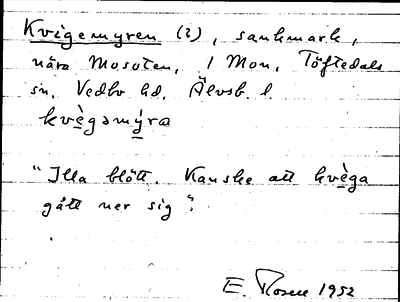 Kvigemyren (2), sankmark,
nära Mosoten, 1 Mon, Töftedals
sn, Vedbo hd, Älvsb. l.
kvè̱gəmý̱ra
"Illa blött. Kanske att kvè̱ga
gått ner sig".
E. Rosell 1952